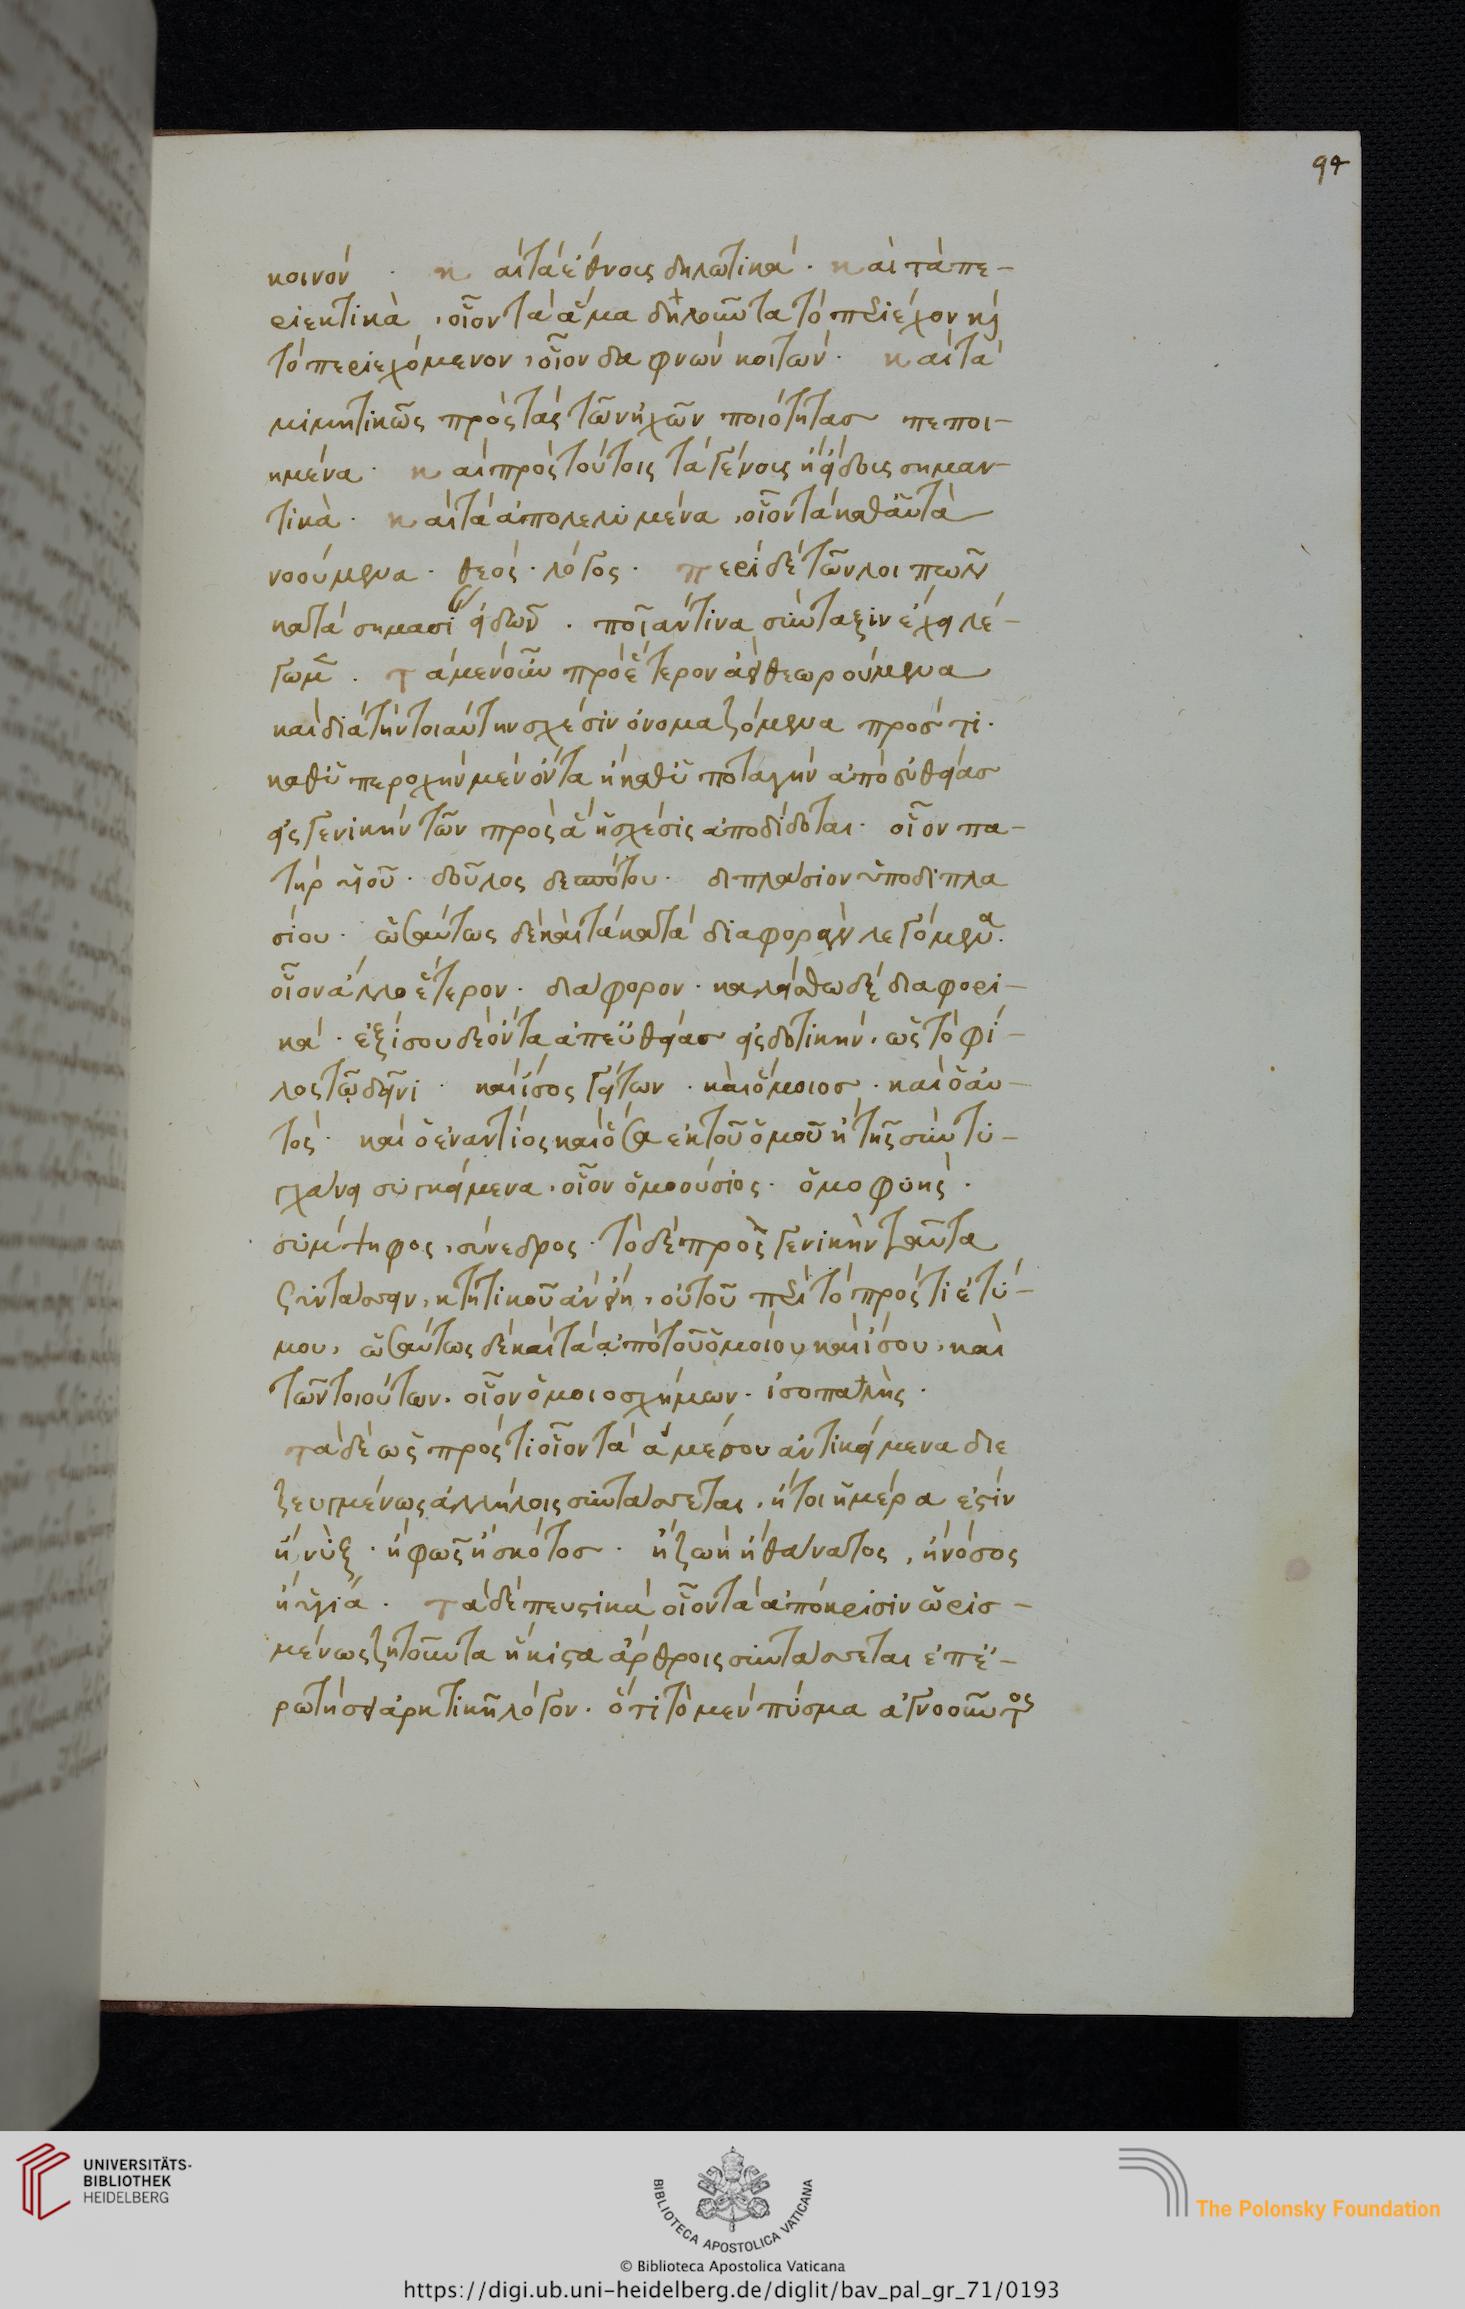 94
κοινόν · καὶ τὰ ἔθνους δηλωτικά · καὶ τὰ πε-
ριεκτικὰ, οἷον τὰ ἅμα δηλοῦντα τὸ περιέχον καὶ
τὸ περιεχόμενον, οἷον δαφνών κοιτών · καὶ τὰ
μιμητικῶς πρὸς τὰς τῶν ἤχων ποιότητας πεποι-
ημένα · καὶ πρὸς τούτοις τὰ γένους ἢ εἴδους σημαν-
τικὰ · καὶ τὰ ἀπολελυμένα, οἷον τὰ καθ' αὑτὰ
νοούμενα · θεός · λόγος · περὶ δὲ τῶν λοιπῶν
κατὰ σημασίαν εἰδῶν · ποῖαν τινα σύνταξιν ἔχει λέ-
γωμεν · τὰ μὲν οὖν πρὸς ἕτερον ἀεὶ θεωρούμενα
καὶ διὰ τὴν τοιαύτην σχέσιν ὀνομαζόμενα προς τι ·
καθ' ὑπεροχὴν μὲν ὄντα ἢ καθ' ὑποταγὴν ἀπὸ εὐθείας
εἰς γενικὴν τῶν πρὸς ἃ ἡ σχέσις ἀποδίδοται · οἷον πα-
τὴρ υἱοῦ · δοῦλος δεσπότου · διπλάσιον ὑποδιπλα
σίου · ὡσαύτως δὲ καὶ τὰ κατὰ διαφορὰν λεγόμενα ·
οἷον ἄλλο ἕτερον · διάφορον · καλείσθω δὲ διαφορι-
κά · ἐξίσου δὲ ὄντα ἀπ' εὐθείας εἰς δοτικήν, ὡς τὸ φί-
λος τῷ δεῖνι · καὶ ἴσος γείτων · καὶ ὅμοιος · καὶ ὁ αὐ-
τός · καὶ ὁ ἐναντίος καὶ ὅσα ἐκ τοῦ ὁμοῦ ἢ τῆς σὺν τυ-
γχάνει συγκείμενα, οἷον ὁμοούσιος · ὁμοφυής ·
σύμψηφος, σύνεδρος · τὸ δὲ πρὸς γενικὴν ταῦτα
συντάσσειν, κτητικοῦ ἂν εἴη, οὐ τοῦ περὶ τὸ πρός τι ἐτύ-
μου, ὡσαύτως δὲ καὶ τὰ ἀπὸ τοῦ ὁμοίου καὶ ἴσου, καὶ
τῶν τοιούτων, οἷον ὁμοιοσχήμων · ἰσοπαλής ·
τὰ δὲ ὡς πρός τι οἷον τὰ ἀμέσου ἀντικείμενα διε
ζευγμένως ἀλλήλοις συντάσσεται, ἤτοι ἡμέρα ἐστίν
ἢ νὺξ · ἢ φῶς ἢ σκότος · ἢ ζωὴ ἢ θάνατος, ἢ νόσος
ἢ ὑγιά · τὰ δὲ πευστικά οἷον τὰ ἀπόκρισιν ὡρισ-
μένως ζητοῦντα ἥκιστα ἄρθροις συντάσσεται ἐπε-
ρωτήσει ἀρκτικῇ λόγον · ὅτι τὸ μὲν πύσμα ἀγνοοῦντος
UNIVERSITÄTS-
BIBLIOTHEK
HEIDELBERG
BIBLIOTECA APOSTOLICA VATICANA
The Polonsky Foundation
© Biblioteca Apostolica Vaticana
https://digi.ub.uni-heidelberg.de/diglit/bav_pal_gr_71/0193